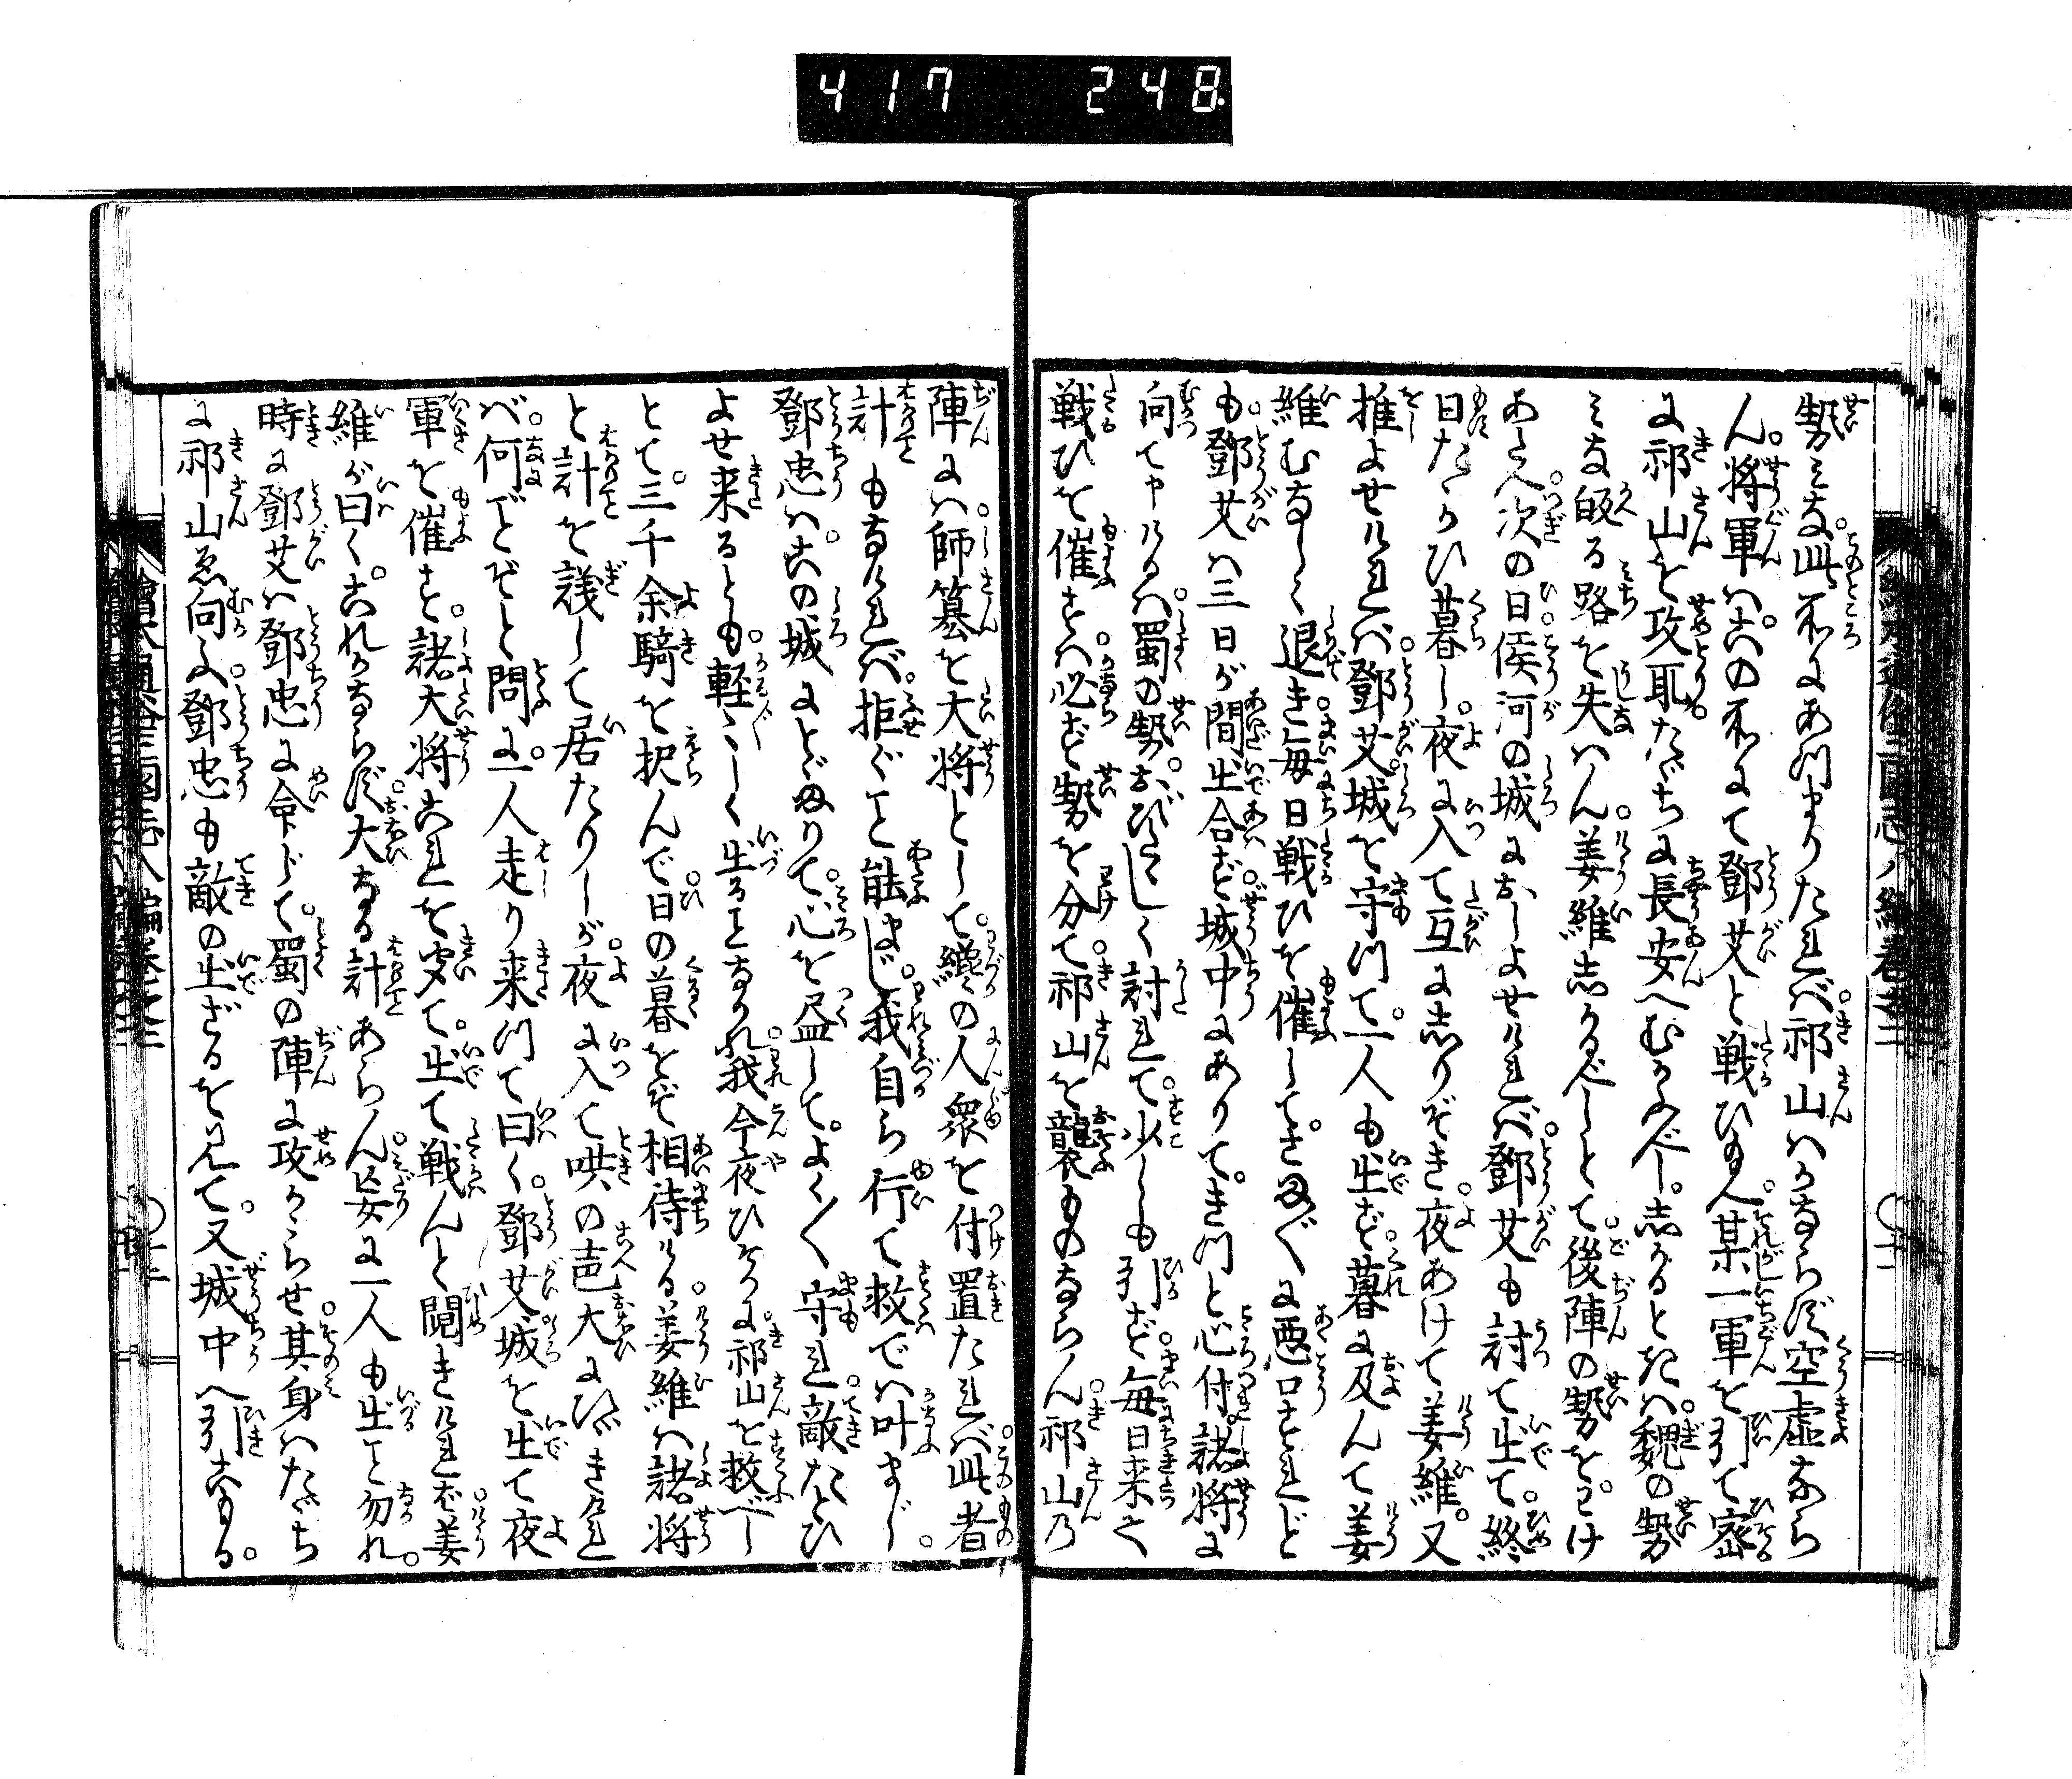 417 248
勢みな此所にあつまりたれば。祁山はかならず空虚なら
ん。将軍は此の所にて鄧艾と戦ひ玉へ。某一軍を引て密
に祁山を攻取。たゞちに長安へむかふべし。志かるときは。魏の勢
みな皈る路を失はん。姜維志かるべしとて。後陣の勢をわけ
あたへ。次の日。侯河の城におしよせければ。鄧艾も討て出て。終
日たゝかひ暮し。夜に入て互に志りぞき。夜あけて姜維。又
推よせければ。鄧艾。城を守つて。一人も出ず。暮に及んて姜
維むなしく退き。毎日戦ひを催して。さま〲に悪口すれど
も。鄧艾は三日が間出合ず。城中にありて。きつと心付。諸将に
向て申けるは。蜀の勢。おびたゝしく討れて。少しも引ず。毎日来て
戦ひを催すは。必ず勢を分て。祁山を襲ものならん。祁山の
陣には。師簒を大将として。纔の人衆を付置たれば。此者
計もなければ。拒ぐこと能はじ。我自ら行て救では叶まじ。
鄧忠は。此の城にとゞまりて。心を尽して。よく〳〵守れ。敵たとひ
よせ来るとも。軽〻しく出ることなかれ。我今夜ひそかに祁山を救べし
とて。三千余騎を択んで。日の暮をぞ相待ける。姜維は諸将
と計を議して居たりしが。夜に入て哄の声大にひゞきけれ
ば。何ごとぞと問に。一人走り来つて曰く。鄧艾。城を出て夜
軍を催すと。諸大将これを聞て。出て戦んと鬩きければ。姜
維が曰く。これかならず大なる計あらん。妄に一人も出こと勿れ。
時に鄧艾は鄧忠に命じて。蜀の陣に攻かゝらせ。其身はたゞち
に祁山ゑ向ふ。鄧忠も敵の出ざるを見て。又城中へ引こもる。
繪本通俗三國志八編卷之三